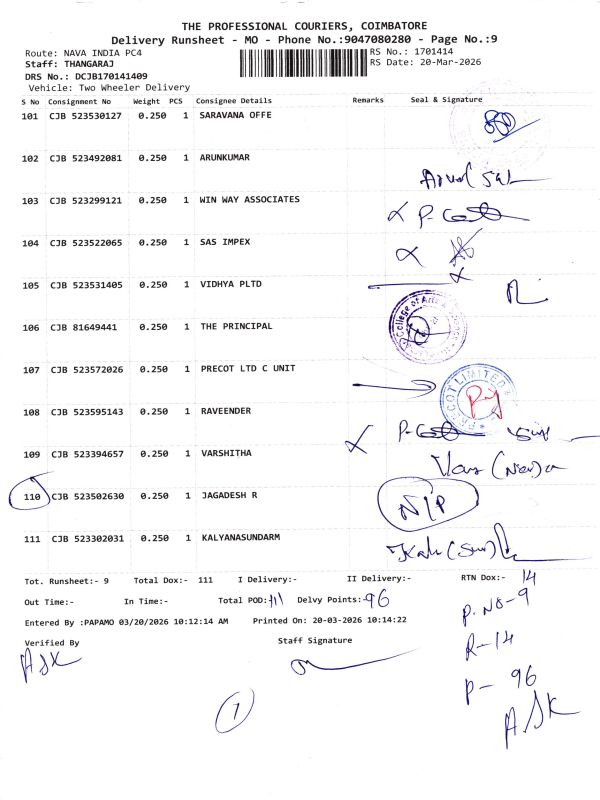 THE PROFESSIONAL COURIERS, COIMBATORE
Delivery Runsheet - MO - Phone No.:9047080280 - Page No.:9
Route: NAVA INDIA PC4 RS No.: 1701414
Staff: THANGARAJ RS Date: 20-Mar-2026
DRS No.: DCJB170141409
Vehicle: Two Wheeler Delivery
S No Consignment No Weight PCS Consignee Details Remarks Seal & Signature
101 CJB 523530127 0.250 1 SARAVANA OFFE
102 CJB 523492081 0.250 1 ARUNKUMAR
103 CJB 523299121 0.250 1 WIN WAY ASSOCIATES
104 CJB 523522065 0.250 1 SAS IMPEX
105 CJB 523531405 0.250 1 VIDHYA PLTD
106 CJB 81649441 0.250 1 THE PRINCIPAL College of Arts
107 CJB 523572026 0.250 1 PRECOT LTD C UNIT PRECOT LIMITED
108 CJB 523595143 0.250 1 RAVEENDER
109 CJB 523394657 0.250 1 VARSHITHA
110 CJB 523502630 0.250 1 JAGADESH R N/P
111 CJB 523302031 0.250 1 KALYANASUNDARM
Tot. Runsheet:- 9 Total Dox:- 111 I Delivery:- II Delivery:- RTN Dox:- 14
Out Time:- In Time:- Total POD:111 Delvy Points:-96
P. NO-9
Entered By :PAPAMO 03/20/2026 10:12:14 AM Printed On: 20-03-2026 10:14:22
R-14
Verified By Staff Signature
P- 96
ASK
ASK